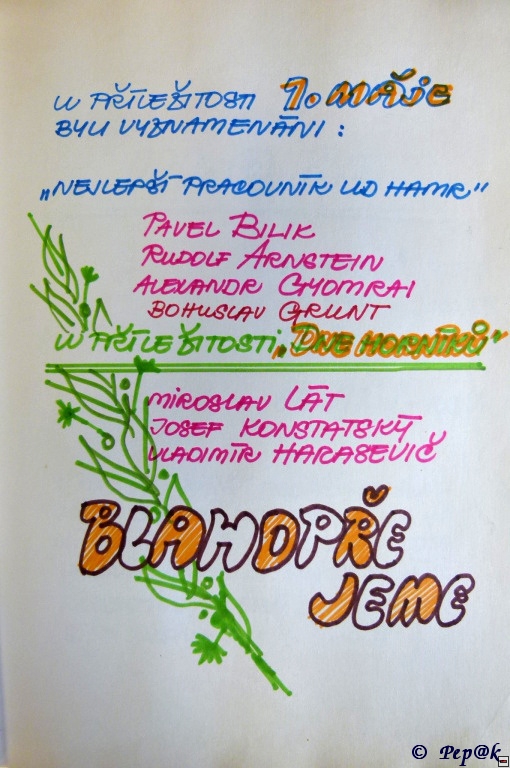 U PŘÍLEŽITOSTI 1. MÁJE
BYLI VYZNAMENÁNI :
„NEJLEPŠÍ PRACOVNÍK UD HAMR“
PAVEL BILIK
RUDOLF ARNSTEIN
ALEXANDR GYOMRAI
BOHUSLAV GRUNT
U PŘÍLEŽITOSTI „DNE HORNÍKŮ“
MIROSLAV LÁT
JOSEF KONSTATSKÝ
VLADIMÍR HARASEVIČ
BLAHOPŘE
JEME
© Pep@k